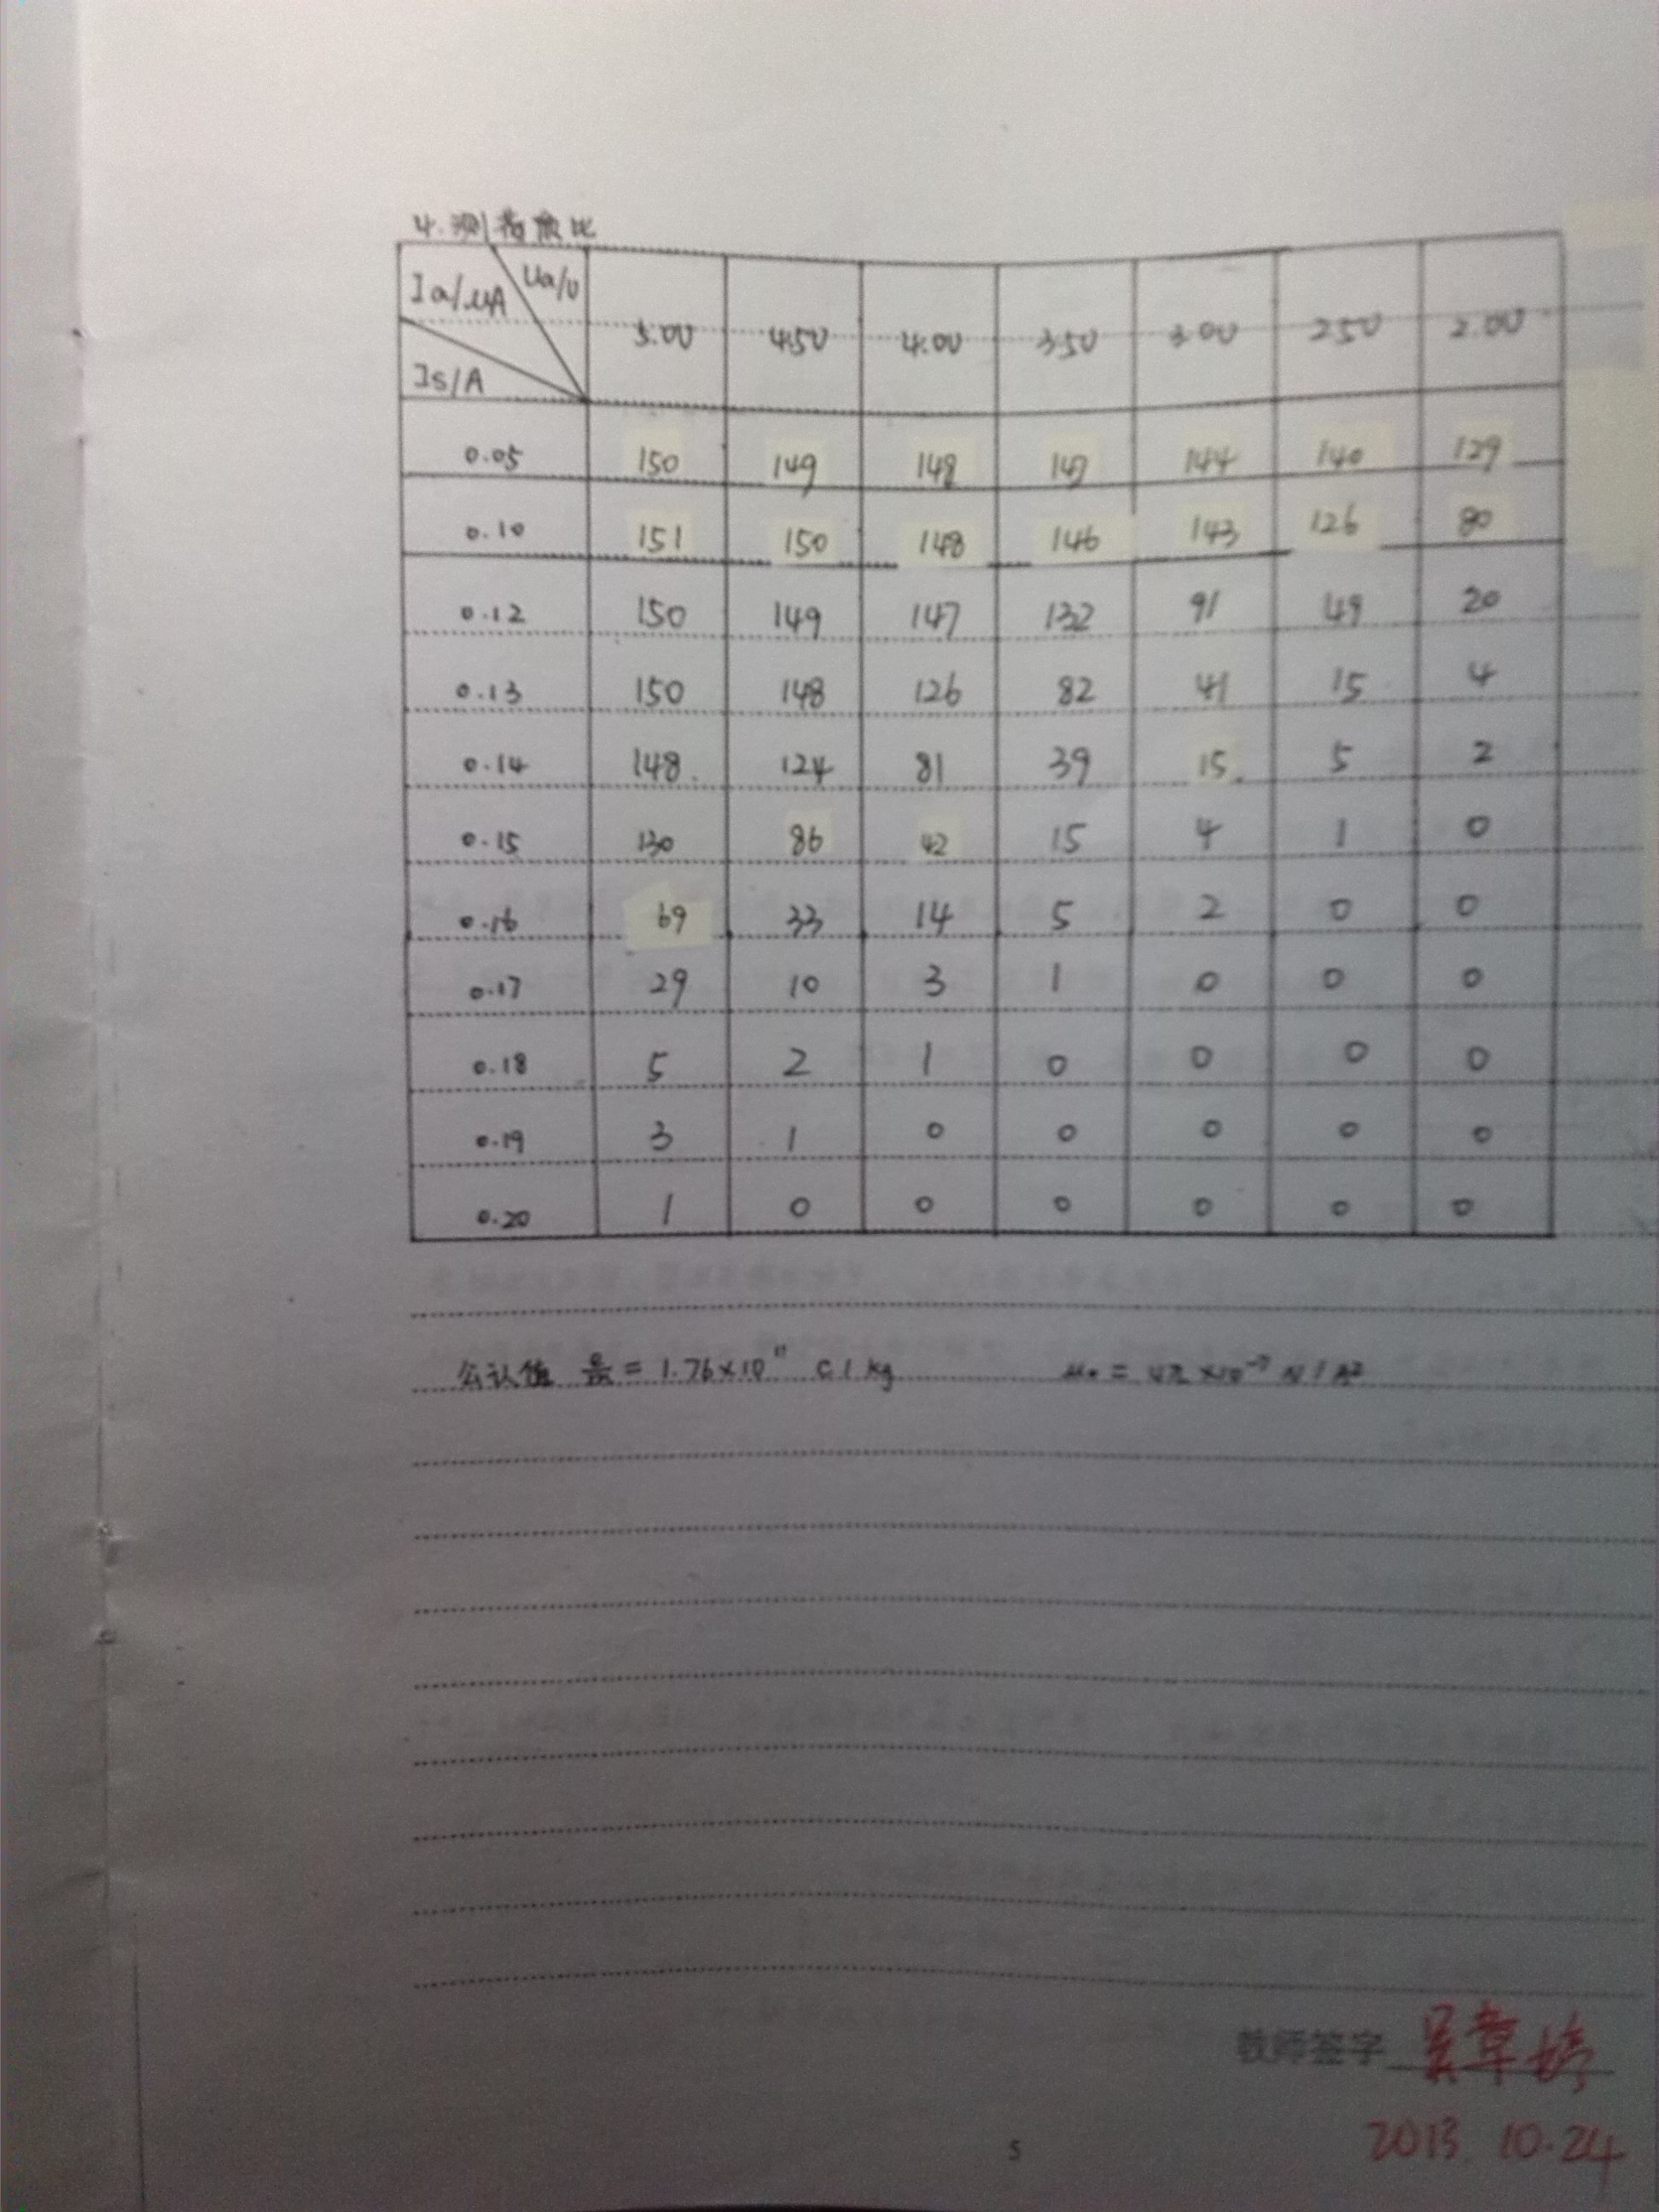 4.测荷质比
Ia/μA Ua/v
Is/A 5.00 4.50 4.00 3.50 3.00 2.50 2.00
0.05 150 149 148 147 144 140 129
0.10 151 150 148 146 143 126 80
0.12 150 149 147 132 91 49 20
0.13 150 148 126 82 41 15 4
0.14 148 124 81 39 15 5 2
0.15 130 86 42 15 4 1 0
0.16 69 33 14 5 2 0 0
0.17 29 10 3 1 0 0 0
0.18 5 2 1 0 0 0 0
0.19 3 1 0 0 0 0 0
0.20 1 0 0 0 0 0 0
公认值 e/m = 1.76×10¹¹ C/kg μ₀ = 4π×10⁻⁷ N/A²
教师签字
2013.10.24
5